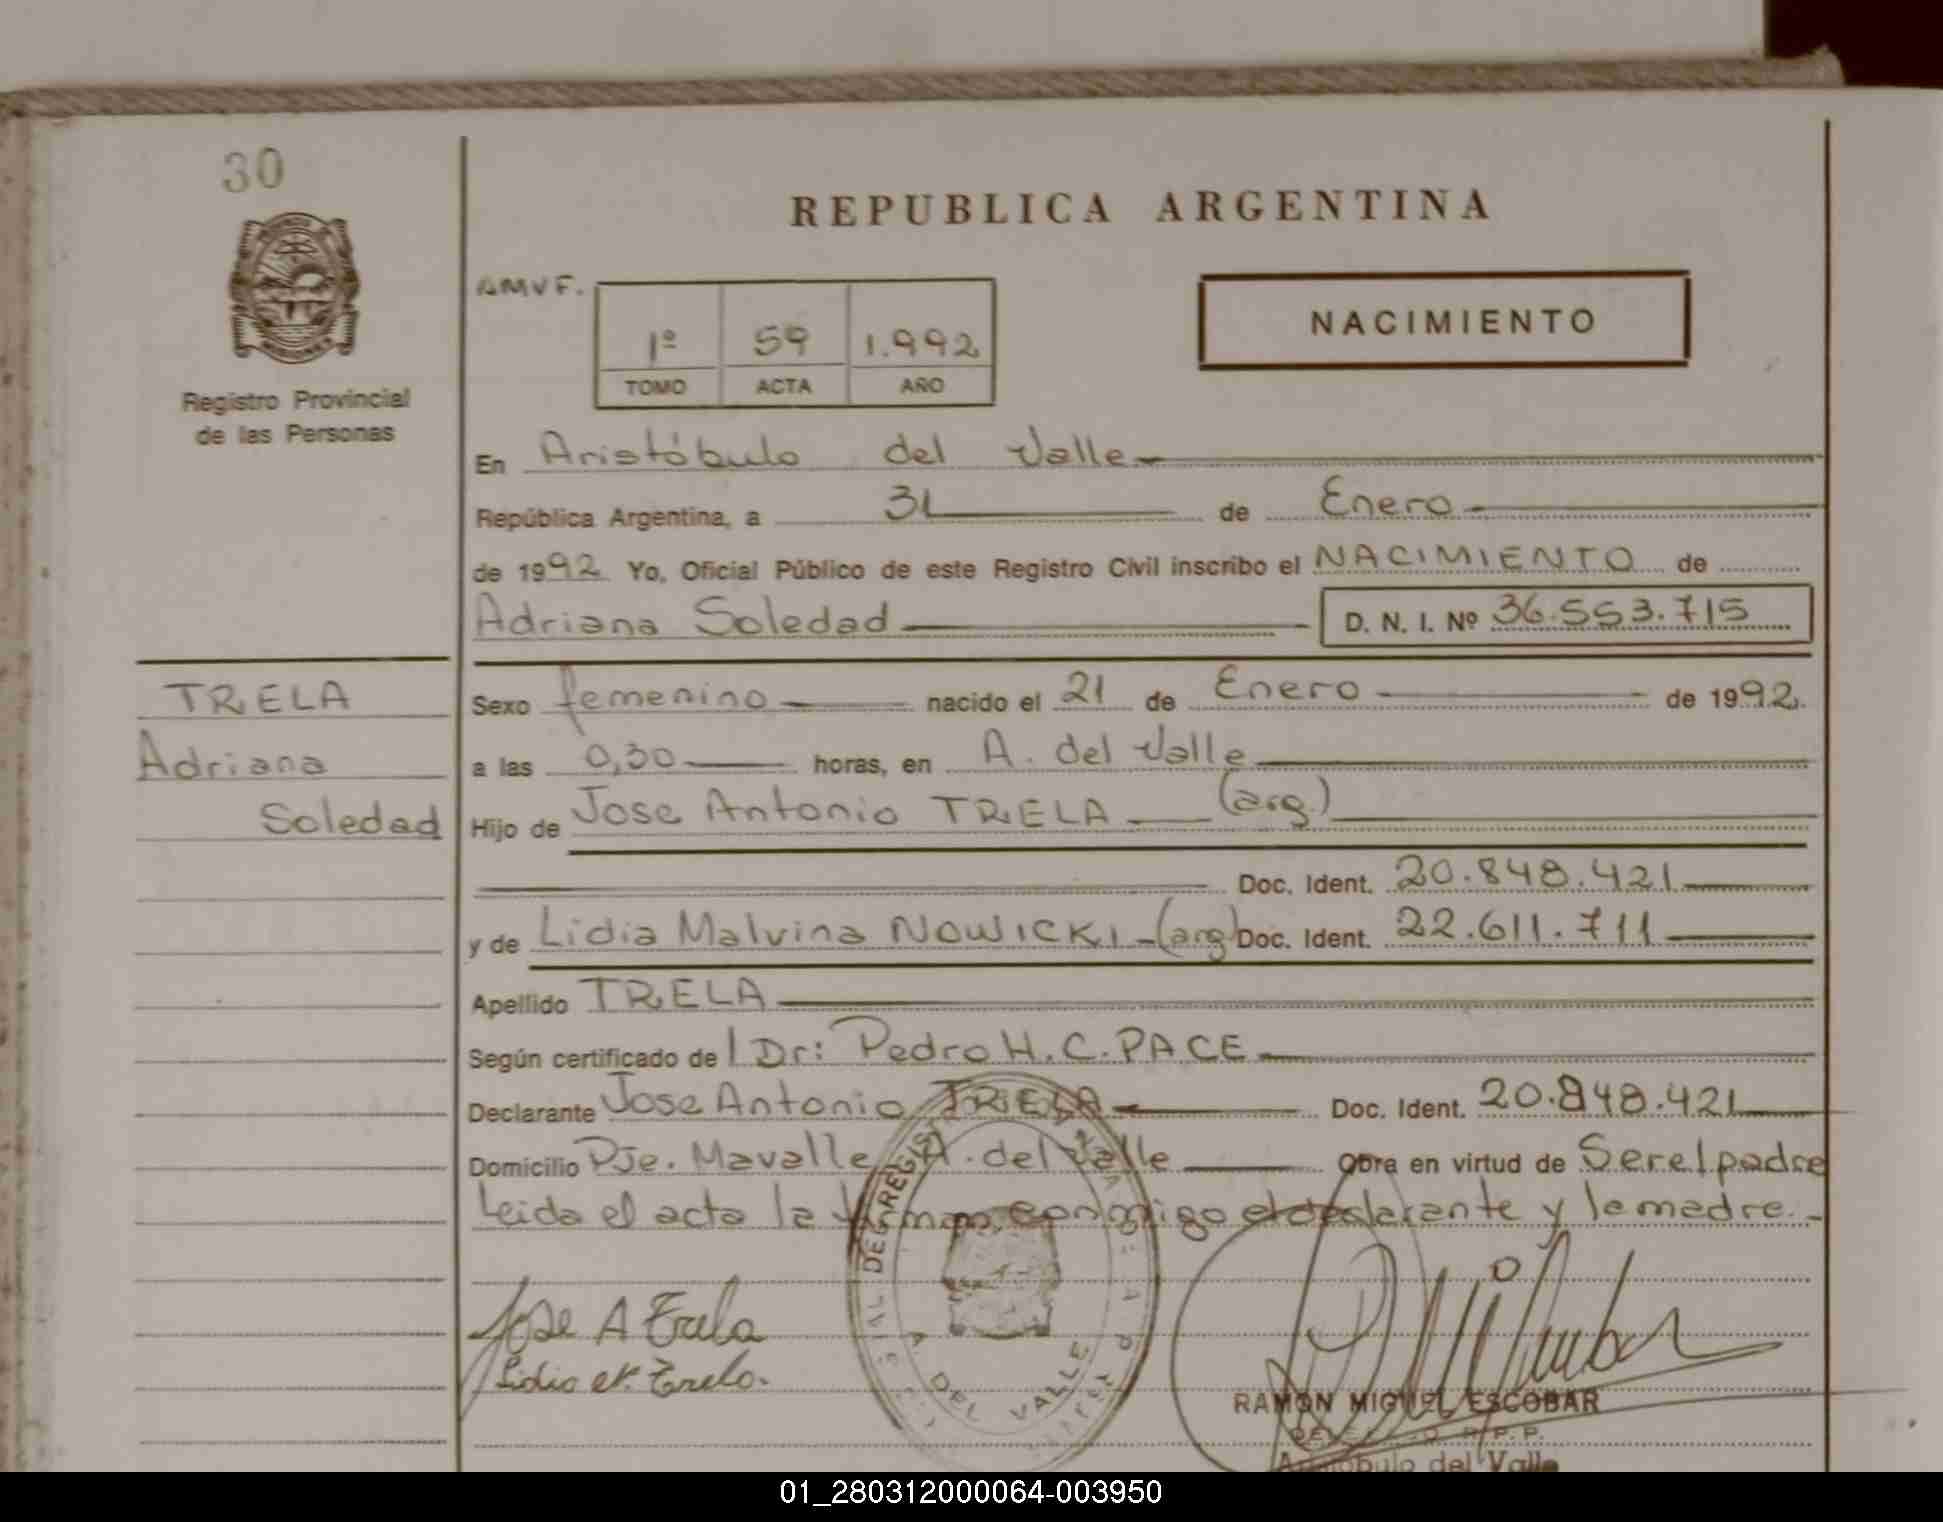 30
REPUBLICA ARGENTINA
AMVF.
1º 59 1.992
TOMO ACTA AÑO
NACIMIENTO
Registro Provincial
de las Personas
En Aristóbulo del Valle
República Argentina, a 31 de Enero
de 1992 Yo, Oficial Público de este Registro Civil inscribo el NACIMIENTO de
Adriana Soledad D. N. I. Nº 36.553.715
TRELA
Adriana
Soledad
Sexo femenino nacido el 21 de Enero de 1992.
a las 0,30 horas, en A. del Valle
Hijo de Jose Antonio TRELA (arg.)
Doc. Ident. 20.848.421
y de Lidia Malvina NOWICKI (arg) Doc. Ident. 22.611.711
Apellido TRELA
Según certificado de l Dr: Pedro H. C. PACE
Declarante Jose Antonio TRELA Doc. Ident. 20.848.421
Domicilio Pje. Mavalle A. del Valle Obra en virtud de Ser el padre
Leida el acta la firman conmigo el declarante y la madre.
Jose A Trela
Lidia N. Trela.
DEL REGIST
A. DEL VALLE
RAMON MIGUEL ESCOBAR
R.P.P.
Aristobulo del Valle
01_280312000064-003950